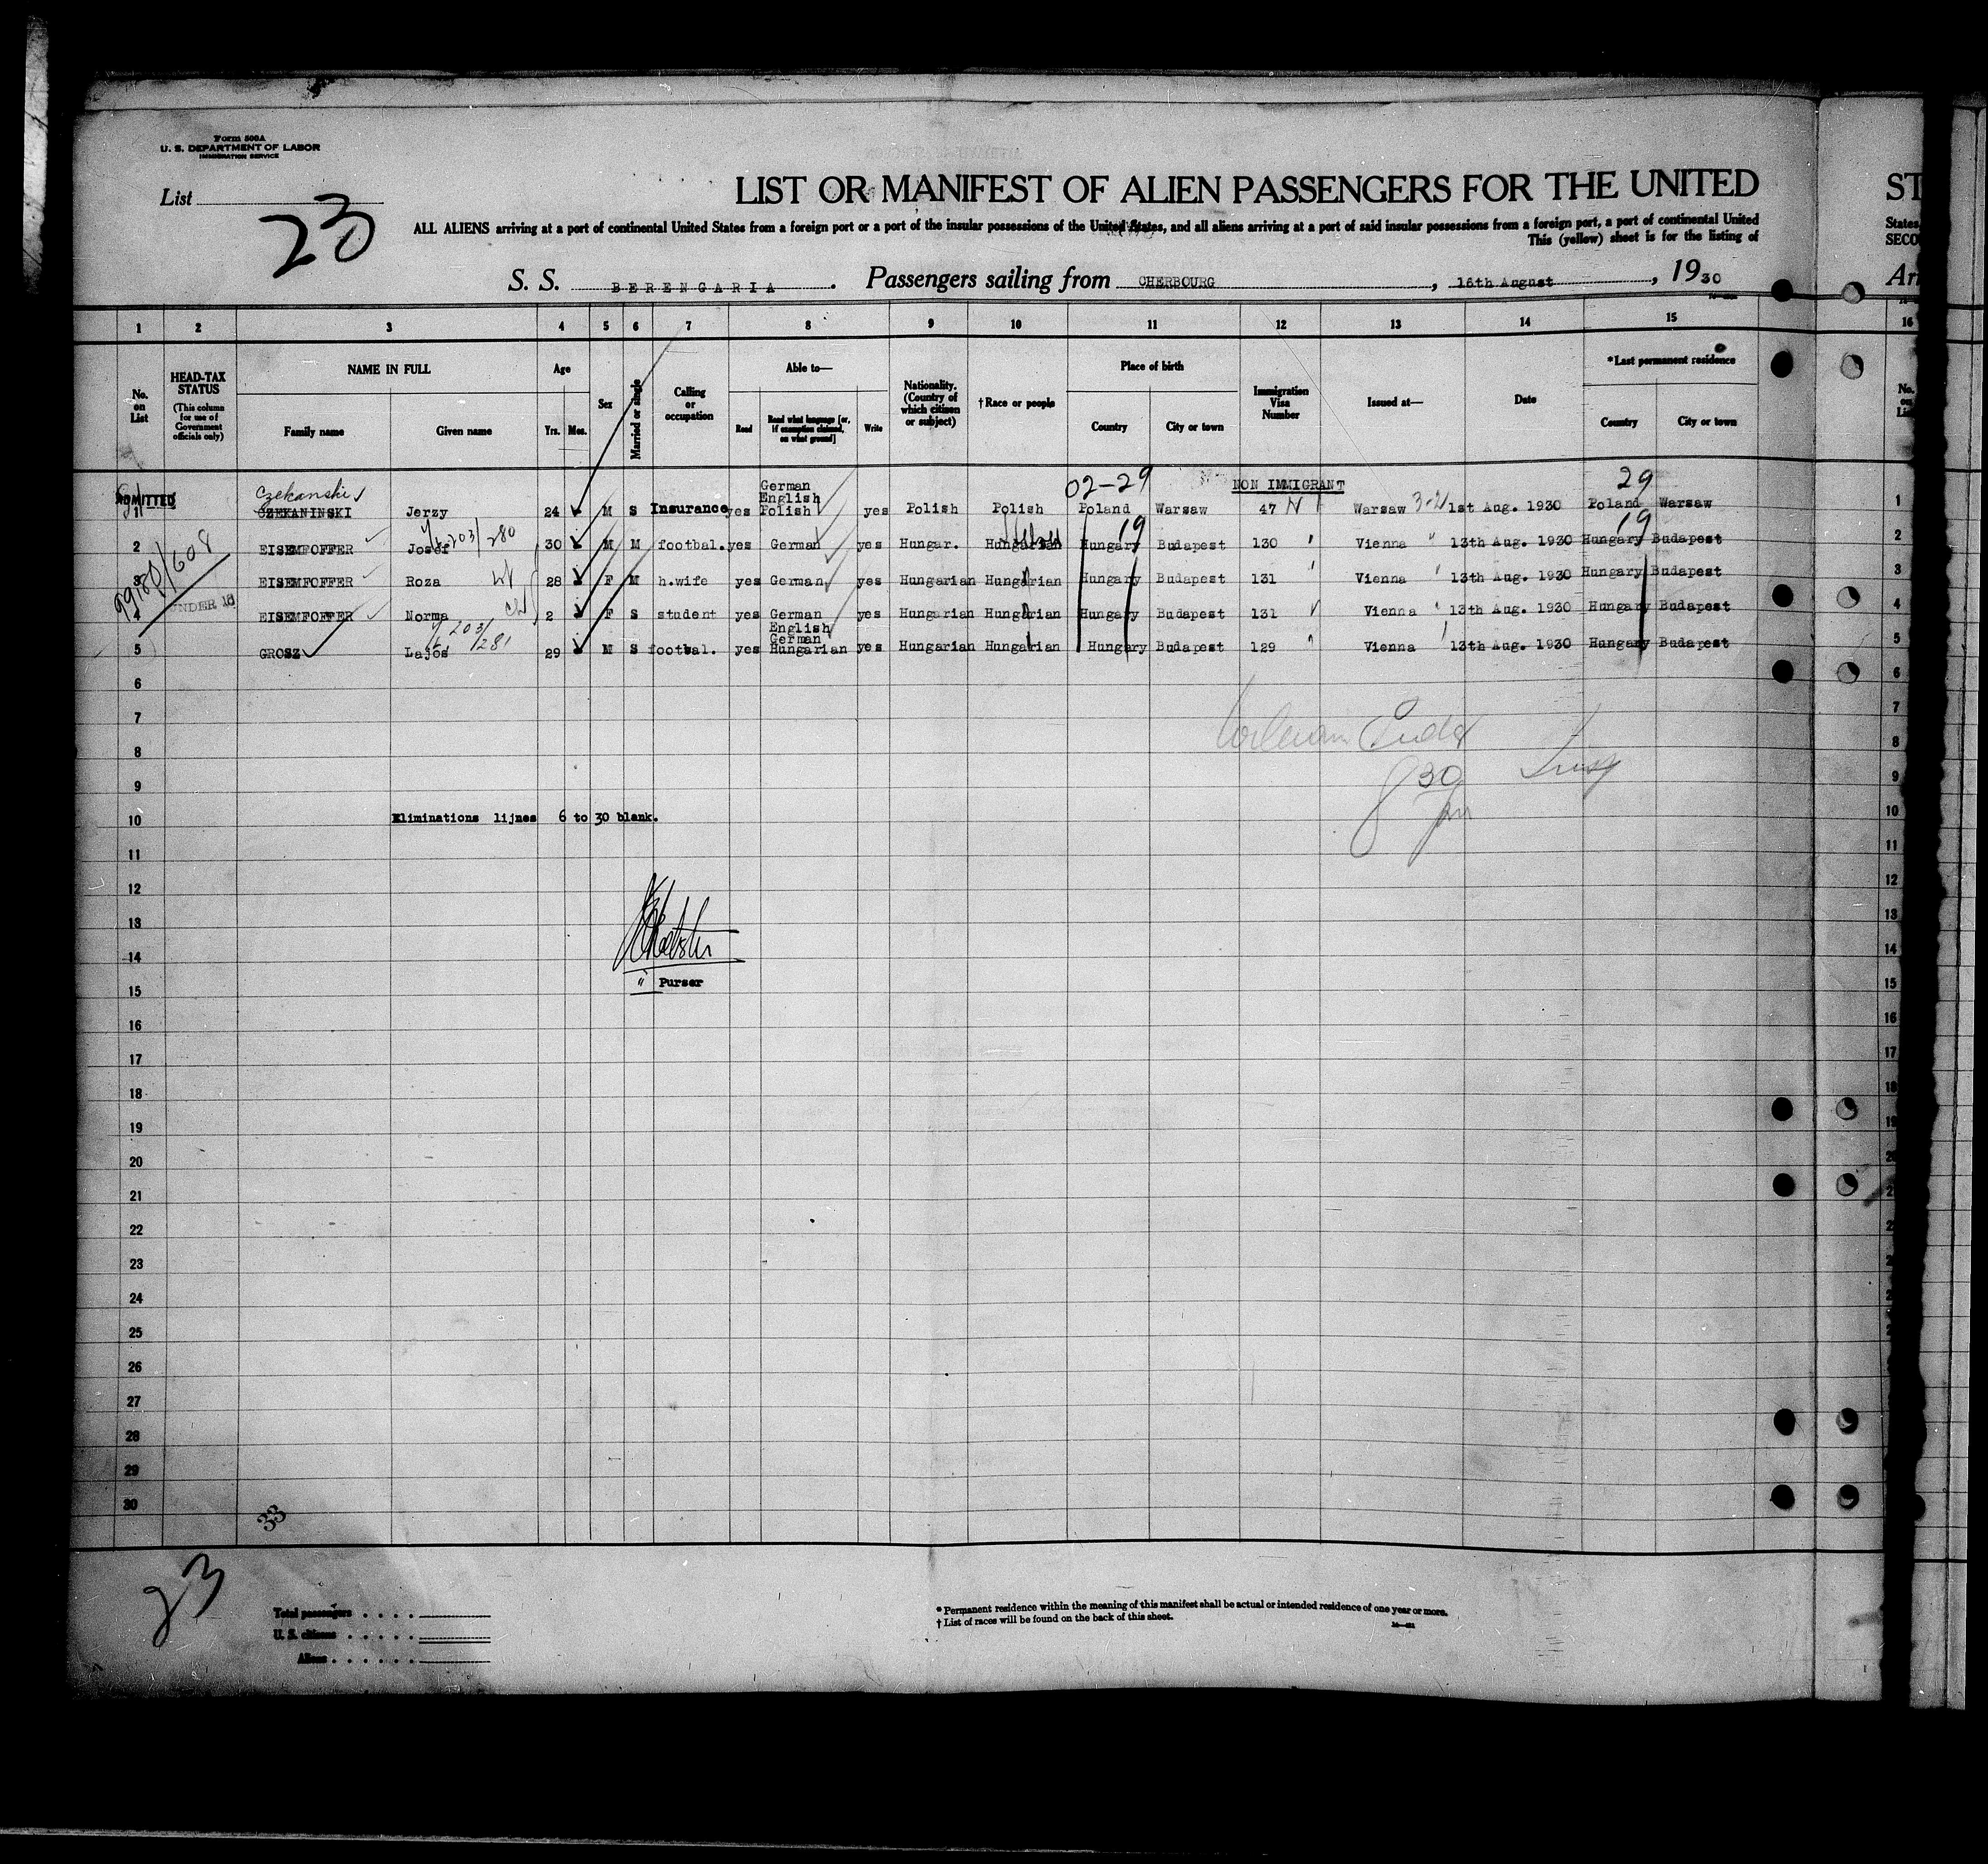 Form 500A
U. S. DEPARTMENT OF LABOR
IMMIGRATION SERVICE
List
23
LIST OR MANIFEST OF ALIEN PASSENGERS FOR THE UNITED
ALL ALIENS arriving at a port of continental United States from a foreign port or a port of the insular possessions of the United States, and all aliens arriving at a port of said insular possessions from a foreign port, a port of continental United
This (yellow) sheet is for the listing of
S. S. BERENGARIA. Passengers sailing from CHERBOURG, 16th August, 1930
ST
States,
SECO
1 2 3 4 5 6 7 8 9 10 11 12 13 14 15 16
No. on List
HEAD-TAX STATUS (This column for use of Government officials only)
NAME IN FULL
Family name Given name
Age
Yrs. Mos.
Sex
Married or single
Calling or occupation
Able to—
Read Read what language [or, if exemption claimed, on what ground] Write
Nationality. (Country of which citizen or subject)
†Race or people
Place of birth
Country City or town
Immigration Visa Number
Issued at—
Date
*Last permanent residence
Country City or town
ADMITTED Czekanski 02-29 NON IMMIGRANT 29
1 CZEKANINSKI Jerzy 24 M S Insurance yes German English Polish yes Polish Polish Poland Warsaw 47 Warsaw 1st Aug. 1930 Poland Warsaw 1
203/280 19 19
2 EISEMFOFFER Josef 30 M M footbal. yes German yes Hungar. Hungarian Hungary Budapest 130 Vienna 13th Aug. 1930 Hungary Budapest 2
3 EISEMFOFFER Roza 28 F M h.wife yes German yes Hungarian Hungarian Hungary Budapest 131 Vienna 13th Aug. 1930 Hungary Budapest 3
UNDER 16
4 EISEMFOFFER Norma 2 F S student yes German yes Hungarian Hungarian Hungary Budapest 131 Vienna 13th Aug. 1930 Hungary Budapest 4
203/281
5 GROSZ Lajos 29 M S footbal. yes English German Hungarian yes Hungarian Hungarian Hungary Budapest 129 Vienna 13th Aug. 1930 Hungary Budapest 5
6 6
7 7
8 8
9 30 9
10 Eliminations lijnes 6 to 30 blank. 10
11 11
12 12
13 13
14 14
15 Purser 15
16 16
17 17
18 18
19 19
20
21
22
23
24
25
26
27
28
29
30
33
23
Total passengers
U. S. citizens
Aliens
* Permanent residence within the meaning of this manifest shall be actual or intended residence of one year or more.
† List of races will be found on the back of this sheet.